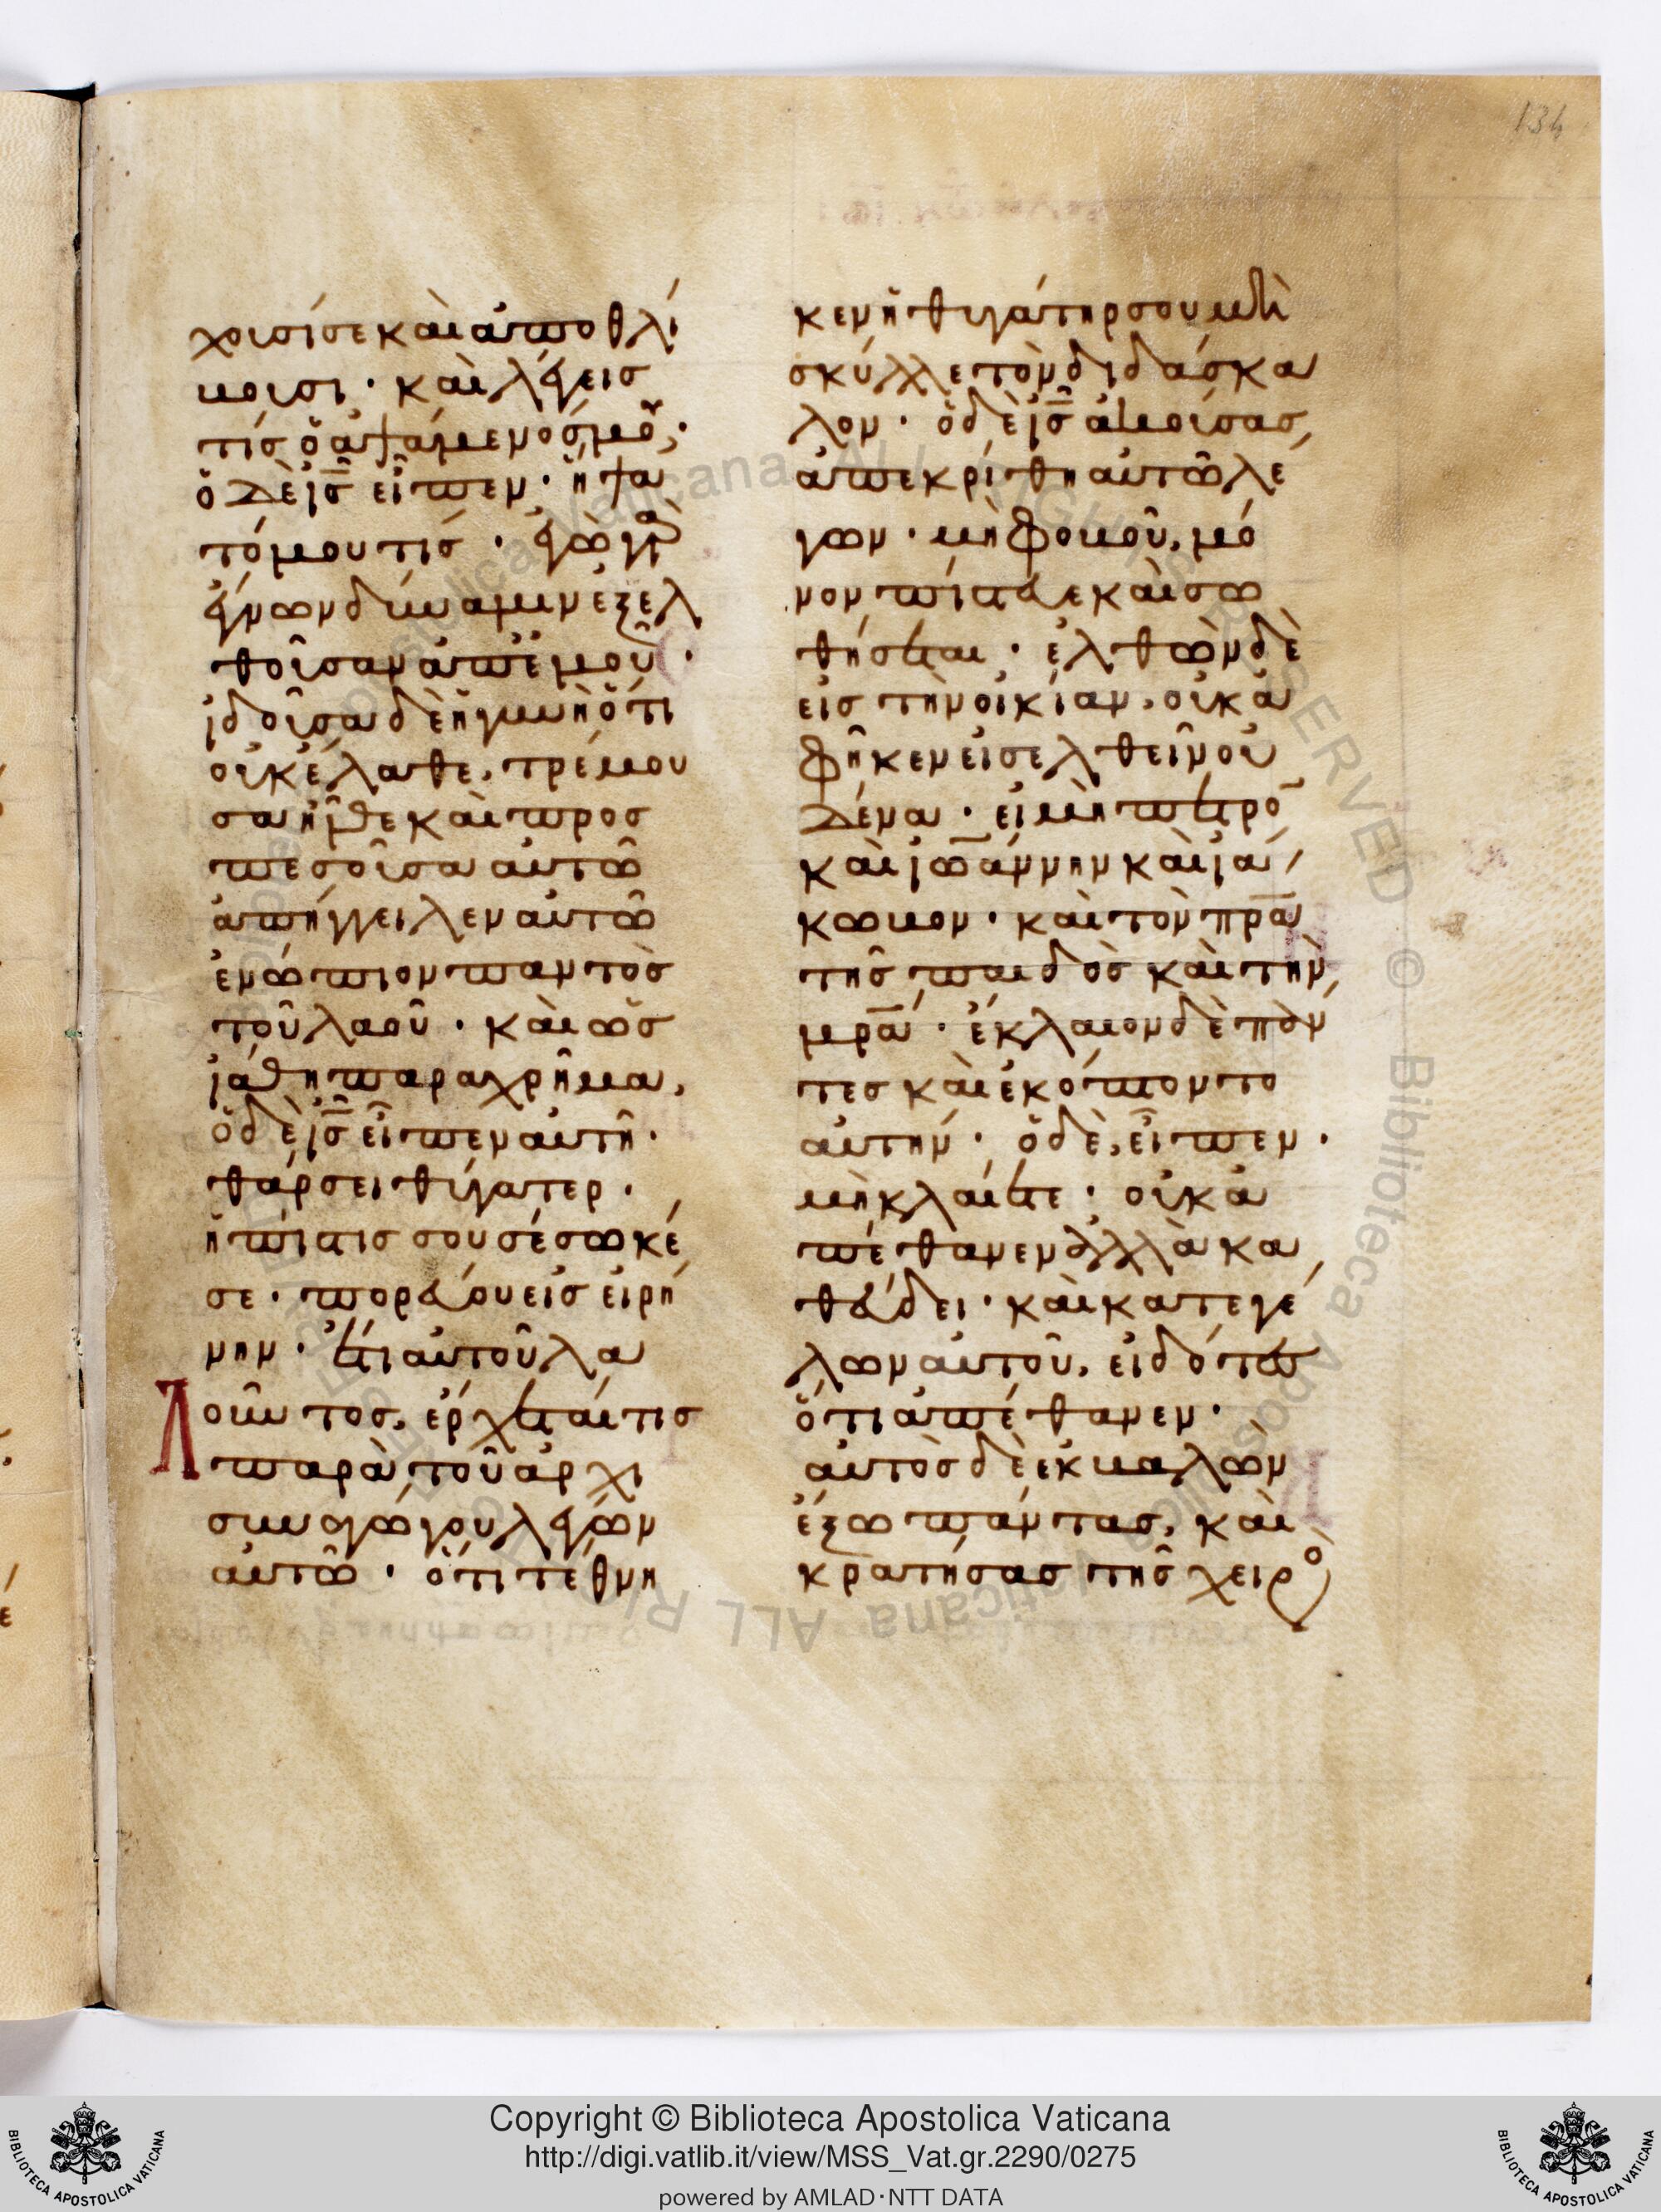 134
χουσί σε καὶ ἀποθλί
βουσι · καὶ λέγεις
τίς ὁ ἁψάμενός μου ·
ὁ δὲ ις εἶπεν · ἥψα
τό μου τίς · ἐγὼ γὰρ
ἔγνων δύναμιν ἐξελ
θοῦσαν ἀπ' ἐμοῦ ·
ἰδοῦσα δὲ ἡ γυνὴ ὅτι
οὐκ ἔλαθε, τρέμου
σα ἦλθε καὶ προσ
πεσοῦσα αὐτῶ
ἀπήγγειλεν αὐτῶ
ἐνώπιον παντὸς
τοῦ λαοῦ · καὶ ὡς
ἰάθη παραχρῆμα,
ὁ δὲ ις εἶπεν αὐτῆ ·
θάρσει θύγατερ ·
ἡ πίστις σου σέσωκέ
σε · πορεύου εἰς εἰρή
νην · ἔτι αὐτοῦ λα
λοῦντος, ἔρχεταί τις
παρὰ τοῦ ἀρχι
συναγώγου λέγων
αὐτῶ · ὅτι τέθνη
κεν ἡ θυγάτηρ σου μὴ
σκύλλε τὸν διδάσκα
λον · ὁ δὲ ις ἀκούσας,
ἀπεκρίθη αὐτῶ λέ
γων · μὴ φοβοῦ, μό
νον πίστευε καὶ σω
θήσεται · ἐλθὼν δὲ
εἰς τὴν οἰκίαν, οὐκ ἀ
φῆκεν εἰσελθεῖν οὐ
δένα · εἰ μὴ πέτρον
καὶ ἰωάννην καὶ ἰά
κωβον · καὶ τὸν πρα
τῆς παιδὸς καὶ τὴν
μρα · ἔκλαιον δὲ πάν
τες καὶ ἐκόπτοντο
αὐτήν · ὁ δὲ, εἶπεν ·
μὴ κλαίετε · οὐκ ἀ
πέθανεν ἀλλὰ κα
θεύδει · καὶ κατεγέ
λων αὐτοῦ, εἰδότες
ὅτι ἀπέθανεν ·
αὐτὸς δὲ ἐκβαλὼν
ἔξω πάντας, καὶ
κρατήσας τῆς χειρὸ
Copyright © Biblioteca Apostolica Vaticana
http://digi.vatlib.it/view/MSS_Vat.gr.2290/0275
powered by AMLAD·NTT DATA
BIBLIOTECA APOSTOLICA VATICANA
BIBLIOTECA APOSTOLICA VATICANA